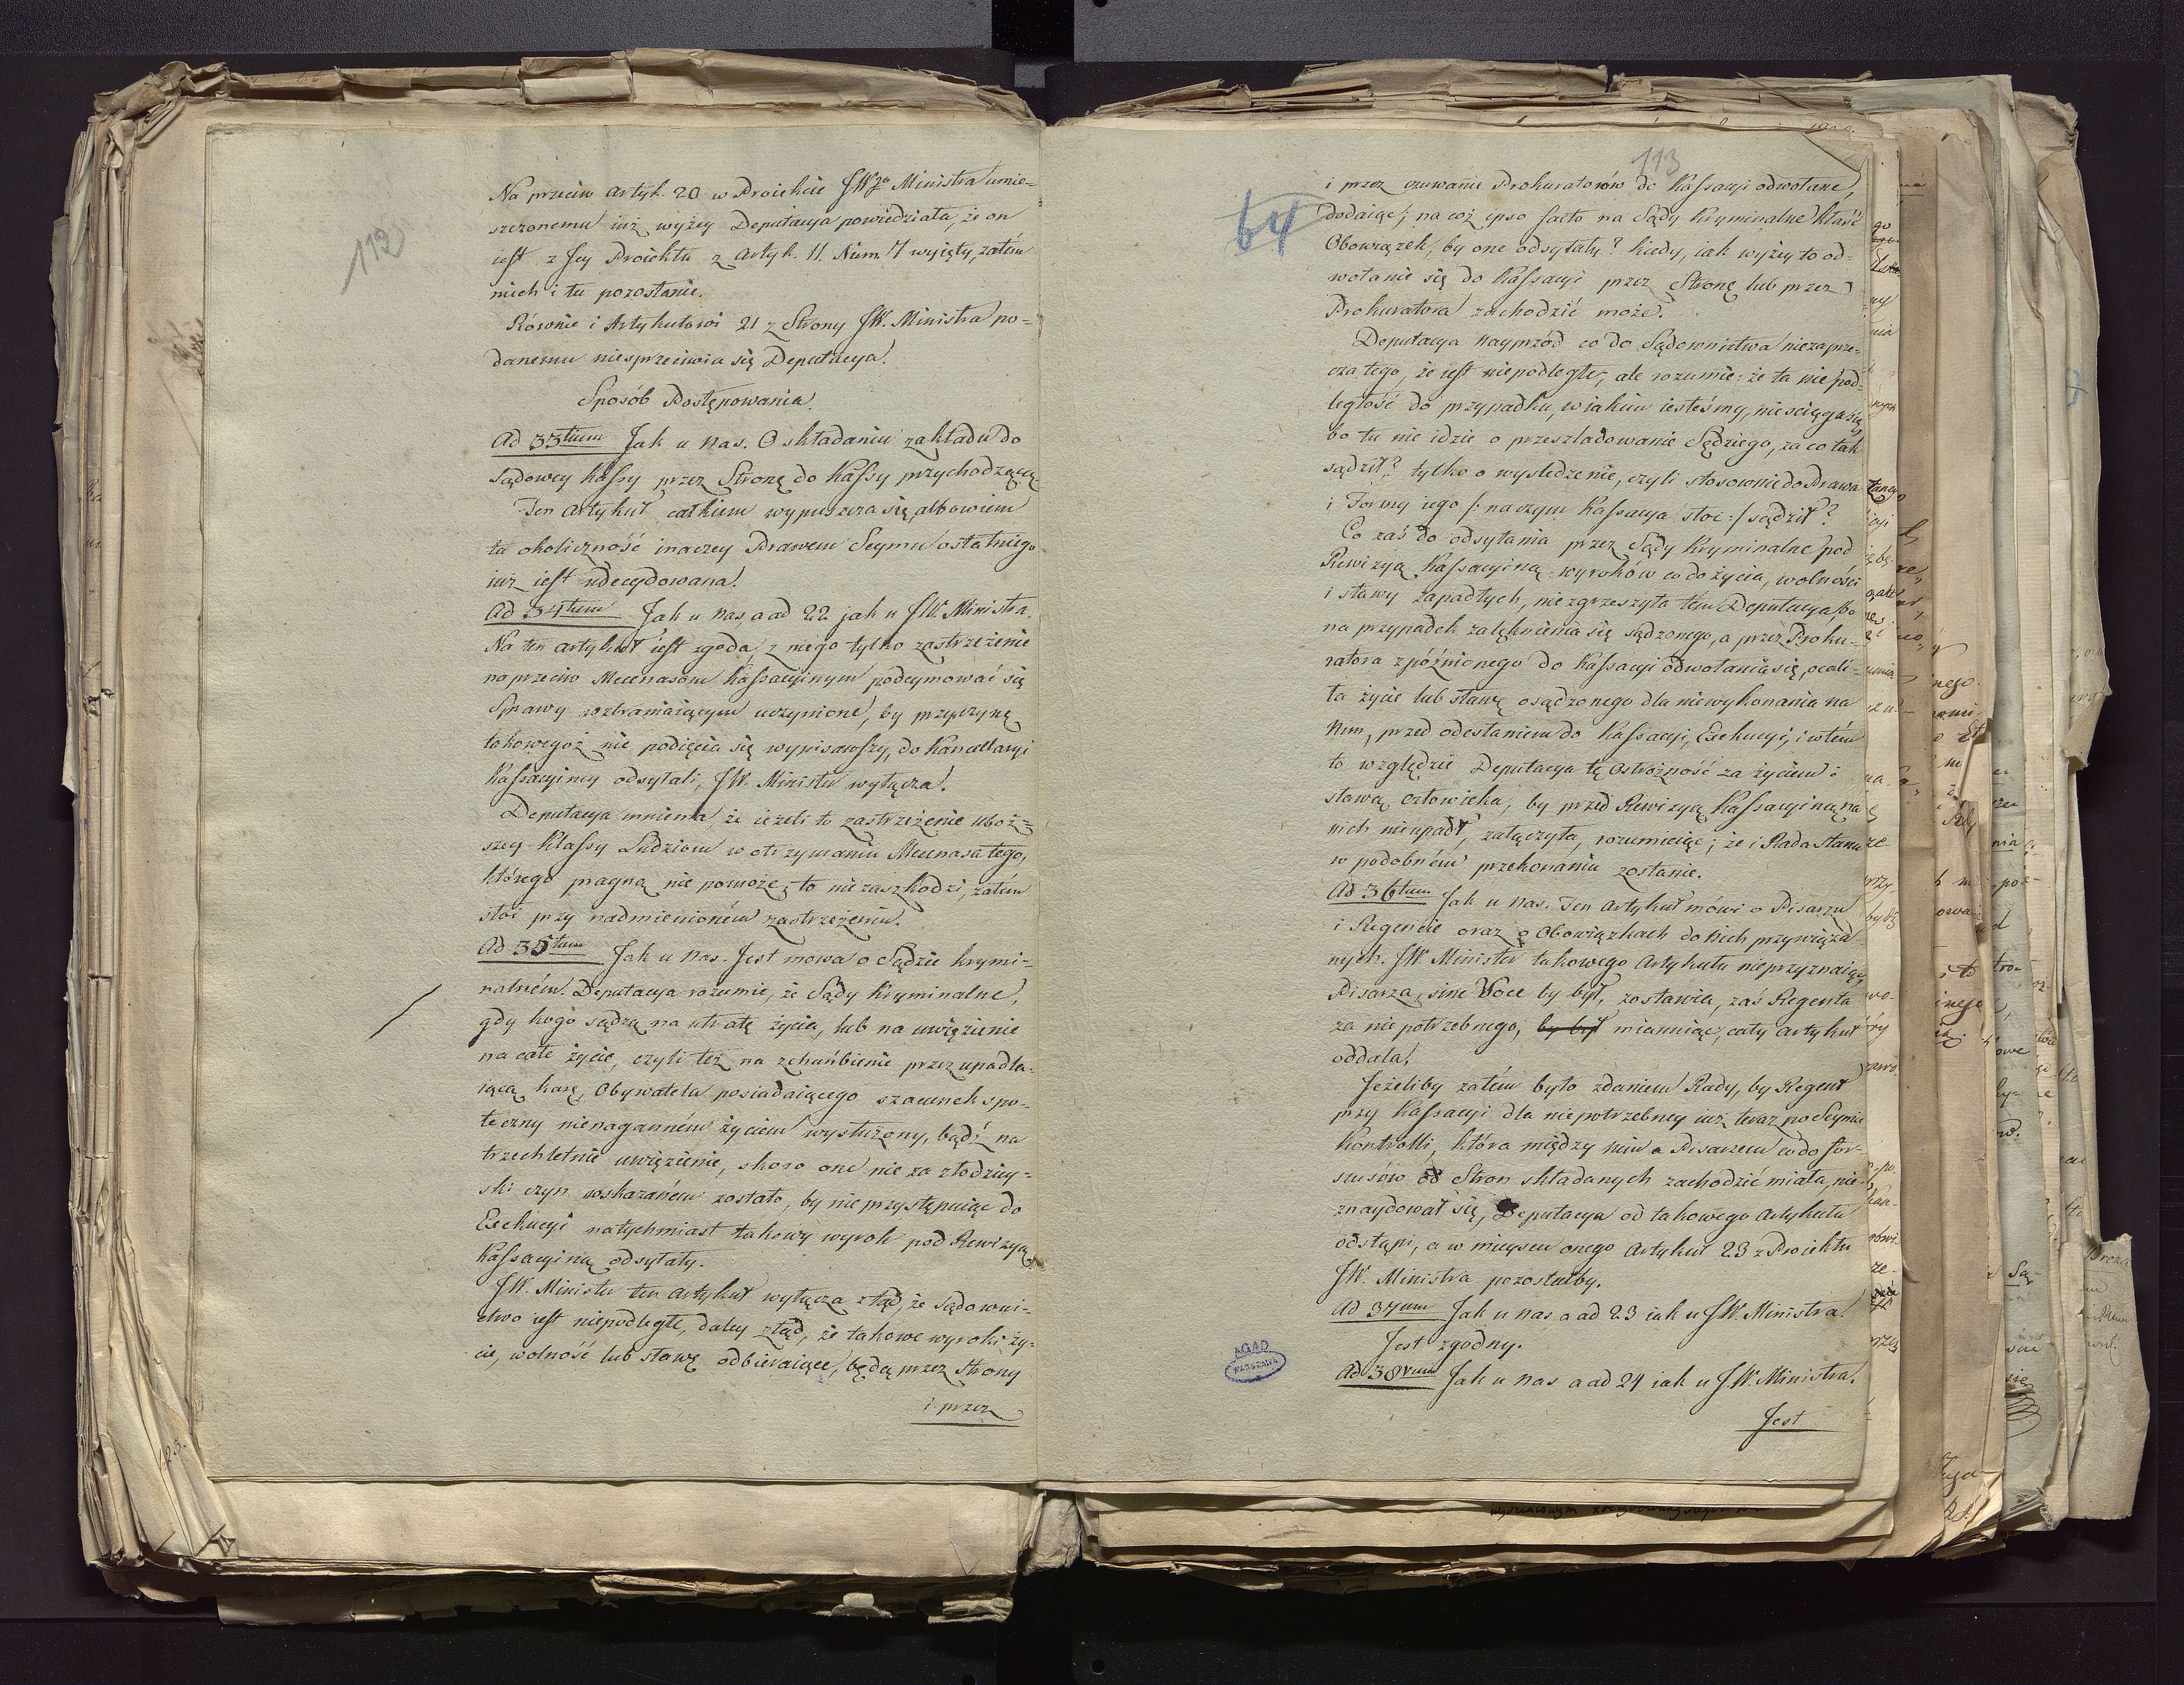 112
Na przeciw Artyk. 20 w Proiekcie JWgo Ministra umie-
szczonemu iuż wyżey Deputacya powiedziała, że on
iest z Jey Proiektu z Artyk. 11. Num. 7 wyięty, zatém
niech i tu pozostanie.
Równie i Artykułowi 21 z Strony JW. Ministra po-
danemu niesprzeciwia się Deputacya.
Sposób Postępowania.
Ad 33tium Jak u nas. O składaniu zakładu do
Sądowey Kassy przez Stronę do Kassy przychodzącą.
Ten Artykuł całkiem wypuszcza się, albowiem
ta okoliczność inaczey Prawem Seymu ostatniego
iuż iest udecydowana.
Ad 34tum Jak u nas, a ad 22 jak u JW. Ministra.
Na ten Artykuł iest zgoda, z niego tylko zastrzeżenie
naprzeciw Mecenasom Kassacyinym podeymować się
Sprawy wzbraniaiącym uczynione, by przyczynę
takowegoż nie podięcia się wypisawszy, do Kancellaryi
Kassacyiney odsyłali, JW. Minister wyłącza.
Deputacya mniema, że ieżeli to zastrzeżenie uboż-
szey Klassy Ludziom w otrzymaniu Mecenasa tego,
którego pragną nie pomoże, to nie zaszkodzi, zatém
stoi przy nadmienioném zastrzeżeniu.
Ad 35tum Jak u nas. Jest mowa o Sądzie krymi-
nalném. Deputacya rozumie, że Sądy Kryminalne,
gdy kogo sądzą na utratę życia, lub na uwięzienie
na całe życie, czyli też na zchańbienie przez upadla-
iącą karę, Obywatela posiadaiącego szacunek spo-
łeczny nienaganném życiem wysłużony, bądź na
trzechletnie uwięzienie, skoro one nie za złodziey-
ski czyn wskazaném zostało, by nie przystępuiąc do
Exekucyi natychmiast takowy wyrok pod Rewizyą
Kassacyiną odsyłały.
JW. Minister ten Artykuł wyłącza ztąd, że Sądowni-
ctwo iest niepodległe, daley ztąd, że takowe wyroki ży-
cie, wolność lub sławę odbieraiące, będą przez Strony
i przez
113
64
i przez czuwanie Prokuratorów do Kassacyi odwołane,
dodaiąc; na coż ipso facto na Sądy Kryminalne kłaść
Obowiązek, by one odsyłały? kiedy, iak wyżey to od-
wołanie się do Kassacyi przez Stronę lub przez
Prokuratora zachodzić może.
Deputacya nayprzód co do Sądownictwa nie zaprze-
cza tego, że iest niepodległe, ale rozumie: że ta niepod-
ległość do przypadku, w iakim iesteśmy, nie ściąga się,
bo tu nie idzie o prześladowanie Sędziego, za co tak
sądził? tylko o wyśledzenie, czyli stosownie do Prawa
i Formy iego /: na czym Kassacya stoi :/ sądził?
Co zaś do odsyłania przez Sądy Kryminalne pod
Rewizyą Kassacyiną wyroków co do życia, wolności
i sławy zapadłych, nie zgrzeszyła tem Deputacya, bo
na przypadek zalęknienia się sądzonego, a przez Proku-
ratora zpóźnionego do Kassacyi odwołania się, ocali-
ła życie lub sławę osądzonego dla niewykonania na
Nim, przed odesłaniem do Kassacyi, Exekucyi, i w tém
to względzie Deputacya tę Ostrożność za życiem i
sławą człowieka, by przed Rewizyą Kassacyiną na
nich nie upadł, załączyła, rozumieiąc; że i Rada Stanu
w podobném przekonaniu zostanie.
Ad 36tum Jak u nas. Ten Artykuł mówi o Pisarzu
i Regencie oraz o Obowiązkach do Nich przywiąza-
nych. JW. Minister takowego Artykułu nieprzyznaiąc,
Pisarza, sine Voce by był, zostawia, zaś Regenta
za niepotrzebnego, by był mianuiąc, cały Artykuł
oddala.
Jeżeliby zatém było zdaniem Rady, by Regent
przy Kassacyi dla niepotrzebney iuż teraz po Seymie
Kontrolli, która między nim a Pisarzem co do for-
szusów od Stron składanych zachodzić miała, nie-
znaydował się, Deputacya od takowego Artykułu
odstąpi, a w mieyscu onego Artykuł 23 z Proiektu
JW. Ministra pozostałby.
Ad 37mum Jak u nas a ad 23 iak u JW. Ministra.
Jest zgodny.
Ad 38vum Jak u nas a ad 24 iak u JW. Ministra.
Jest
AGAD
WARSZAWA